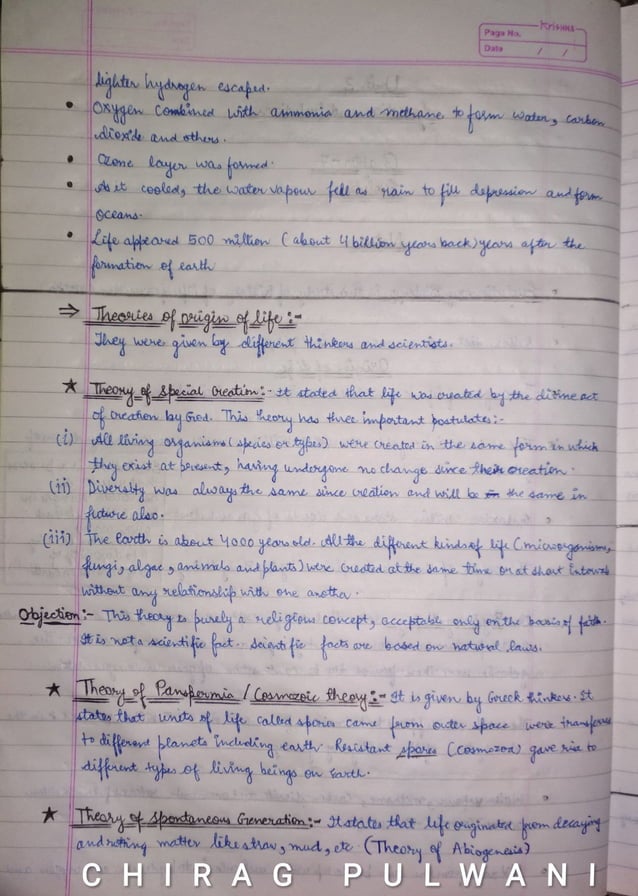 Krishna
Page No.
Date / /
lighter hydrogen escaped.
• Oxygen combined with ammonia and methane to form water, carbon
dioxide and others.
• Ozone layer was formed.
• As it cooled, the water vapour fell as rain to fill depression and form
oceans.
• Life appeared 500 million (about 4 billion years back) years after the
formation of earth
⇒ Theories of origin of life :-
They were given by different thinkers and scientists.
★ Theory of Special Creation :- It stated that life was created by the divine act
of creation by God. This theory has three important postulates :-
(i) All living organisms (species or types) were created in the same form in which
they exist at present, having undergone no change since their creation.
(ii) Diversity was always the same since creation and will be the same in
future also.
(iii) The Earth is about 4000 years old. All the different kinds of life (microorganisms,
fungi, algae, animals and plants) were created at the same time or at short
without any relationship with one another.
Objection :- This theory is purely a religious concept, acceptable only on the basis of faith.
It is not a scientific fact. Scientific facts are based on natural laws.
★ Theory of Panspermia / Cosmozoic theory :- It is given by Greek thinkers. It
states that units of life called spores came from outer space were
to different planets including earth. Resistant spores (cosmozoa) gave rise to
different types of living beings on Earth.
★ Theory of Spontaneous Generation :- It states that life originated from decaying
and rotting matter like straw, mud, etc (Theory of Abiogenesis)
CHIRAG PULWANI